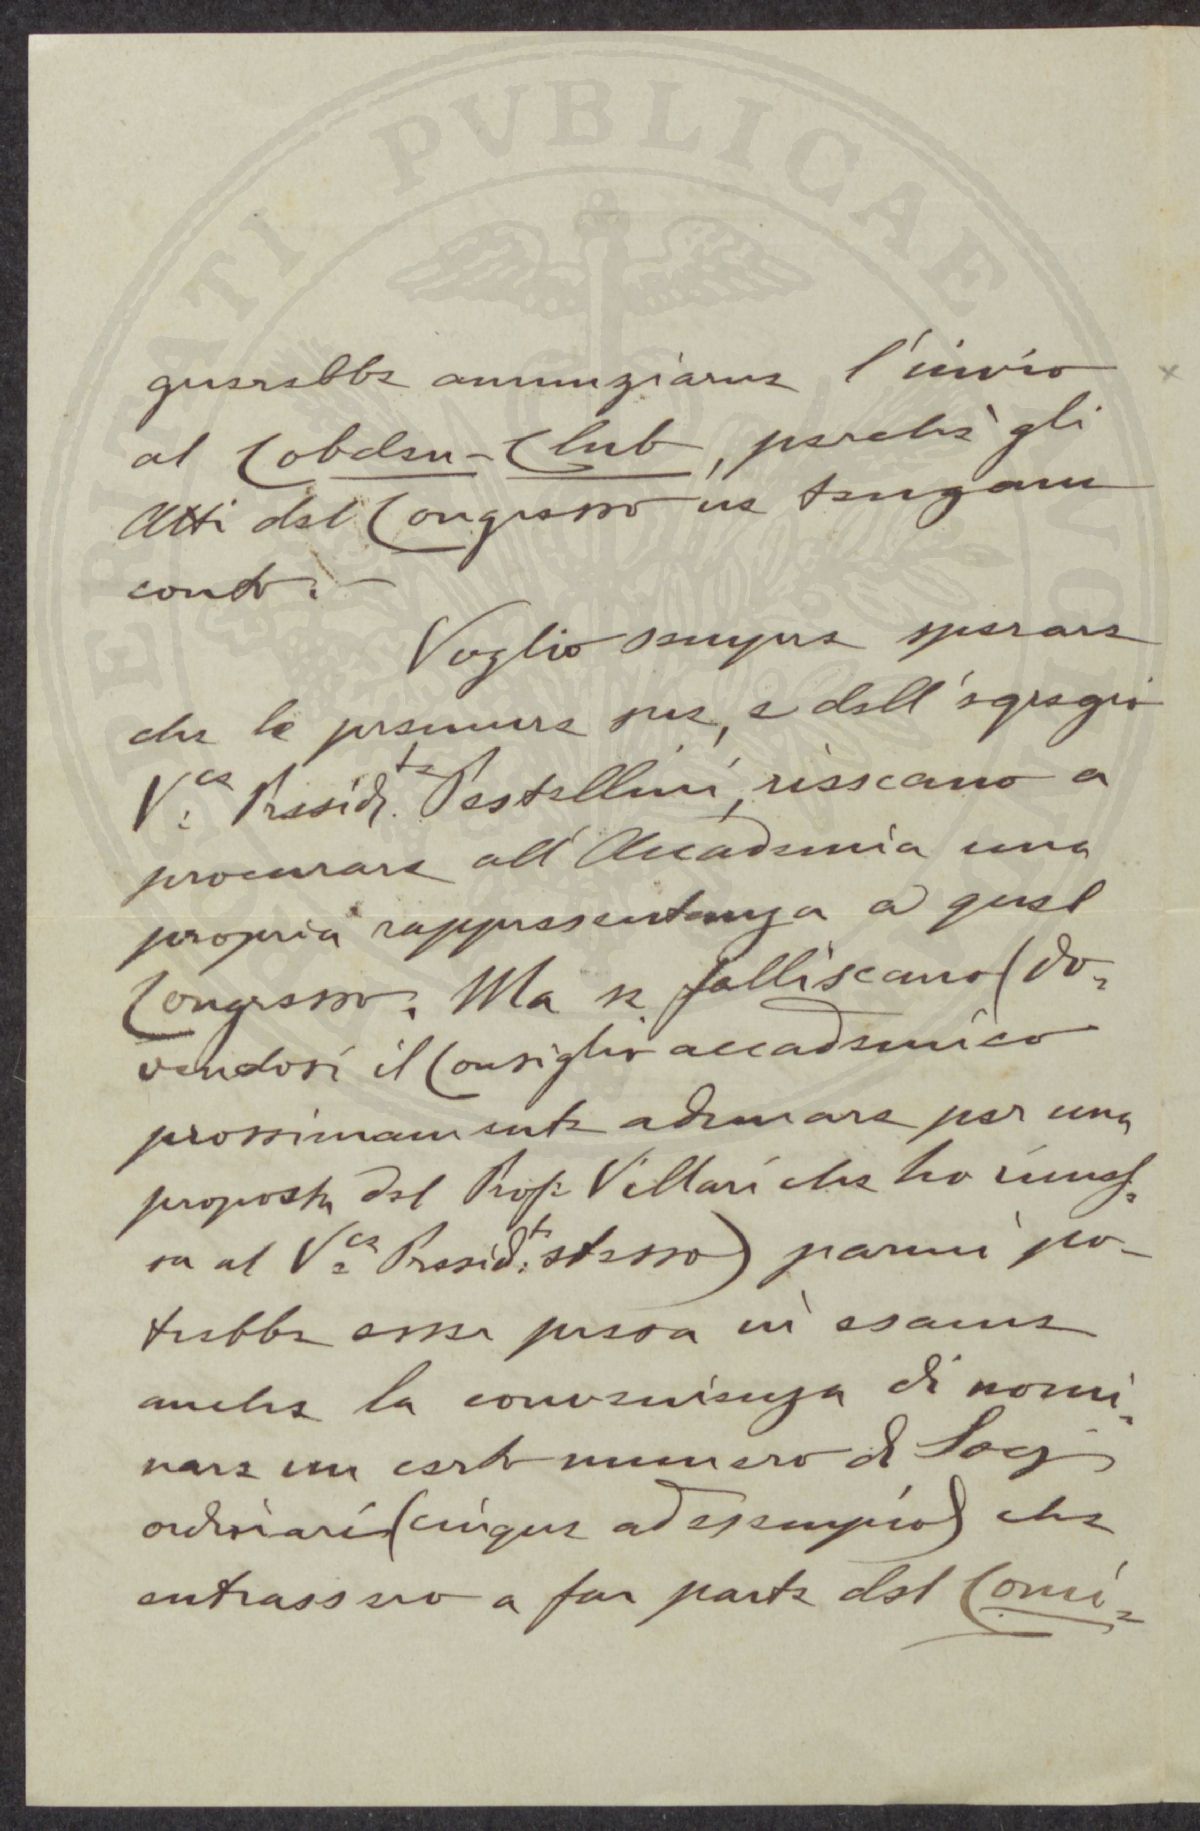 PROSPERITATI PVBLICAE
guerebbe annunziarne l'invio
al Cobden-Club, perchè gli
Atti del Congresso ne tengano
conto. –
Voglio sempre sperare
che le premure sue, e dell'egregio
V.ce Presid.te Pestellini, riescano a
procurare all'Accademia una
propria rappresentanza a quel
Congresso. Ma se falliscano (do=
vendosi il Consiglio accademico
prossimamente adunare per una
proposta del Prof: Villari che ho rimes=
sa al V.ce Presid.te stesso) parmi po-
trebbe esser presa in esame
anche la convenienza di nomi=
nare un certo numero di Socj
ordinari (cinque ad esempio) che
entrassero a far parte del Comi=